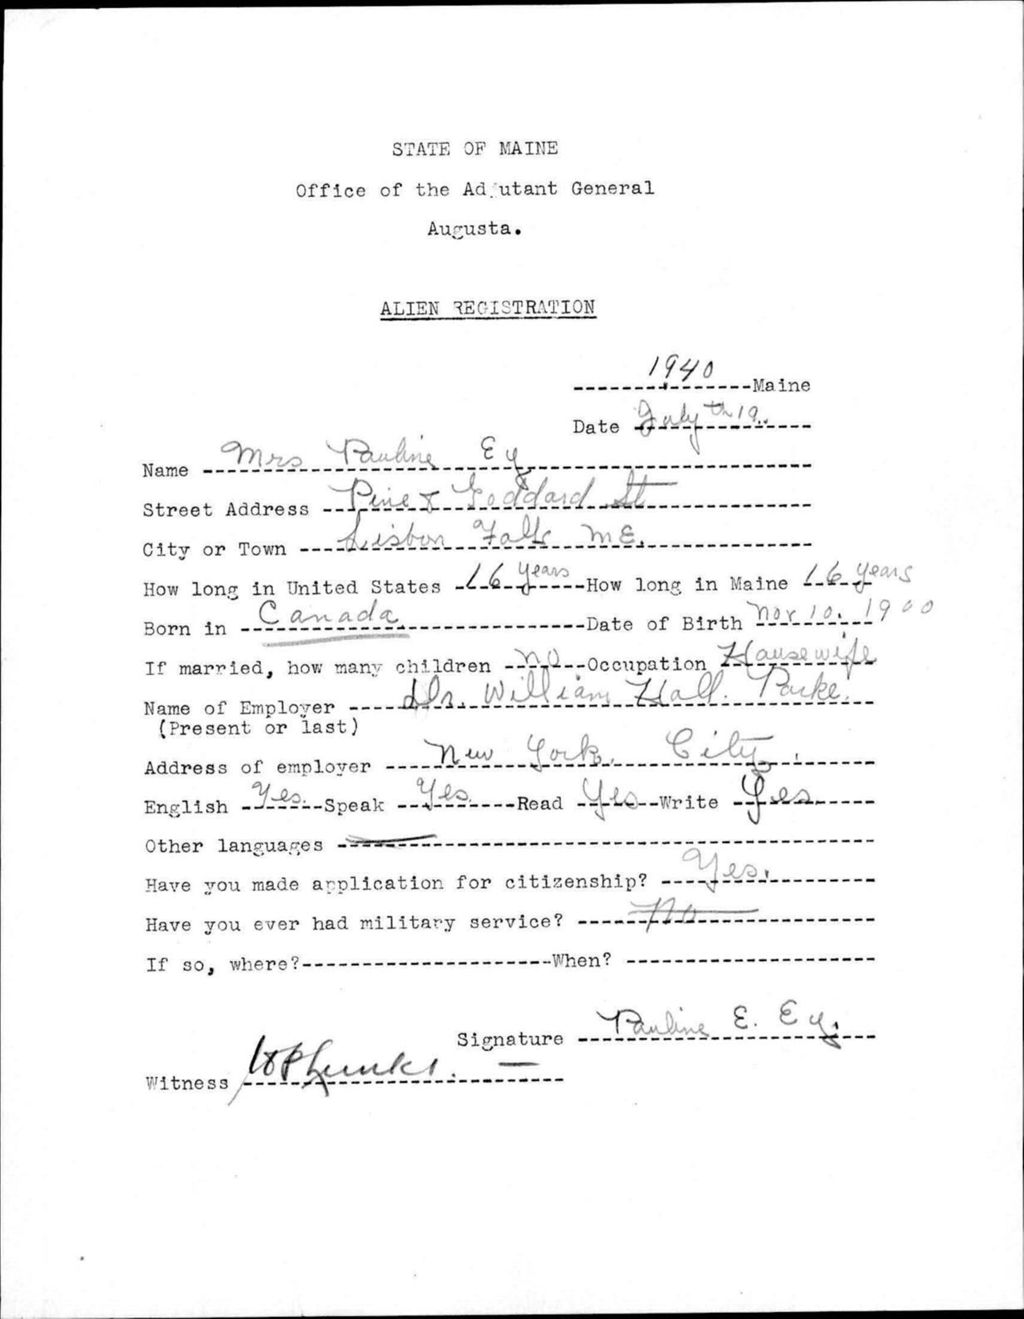 STATE OF MAINE
Office of the Adjutant General
Augusta.
ALIEN REGISTRATION
1940 Maine
Date July th 19.
Name Mrs Pauline Ey
Street Address Pine & Goddard St
City or Town Lisbon Falls ME.
How long in United States 16 years How long in Maine 16 years
Born in Canada Date of Birth Nov 10. 1900
If married, how many children NO Occupation Housewife
Name of Employer Dr. William Hall. Parke.
(Present or last)
Address of employer New York. City.
English Yes. Speak Yes. Read Yes Write Yes
Other languages
Have you made application for citizenship? Yes.
Have you ever had military service? No
If so, where? When?
Signature Pauline E. Ey.
Witness